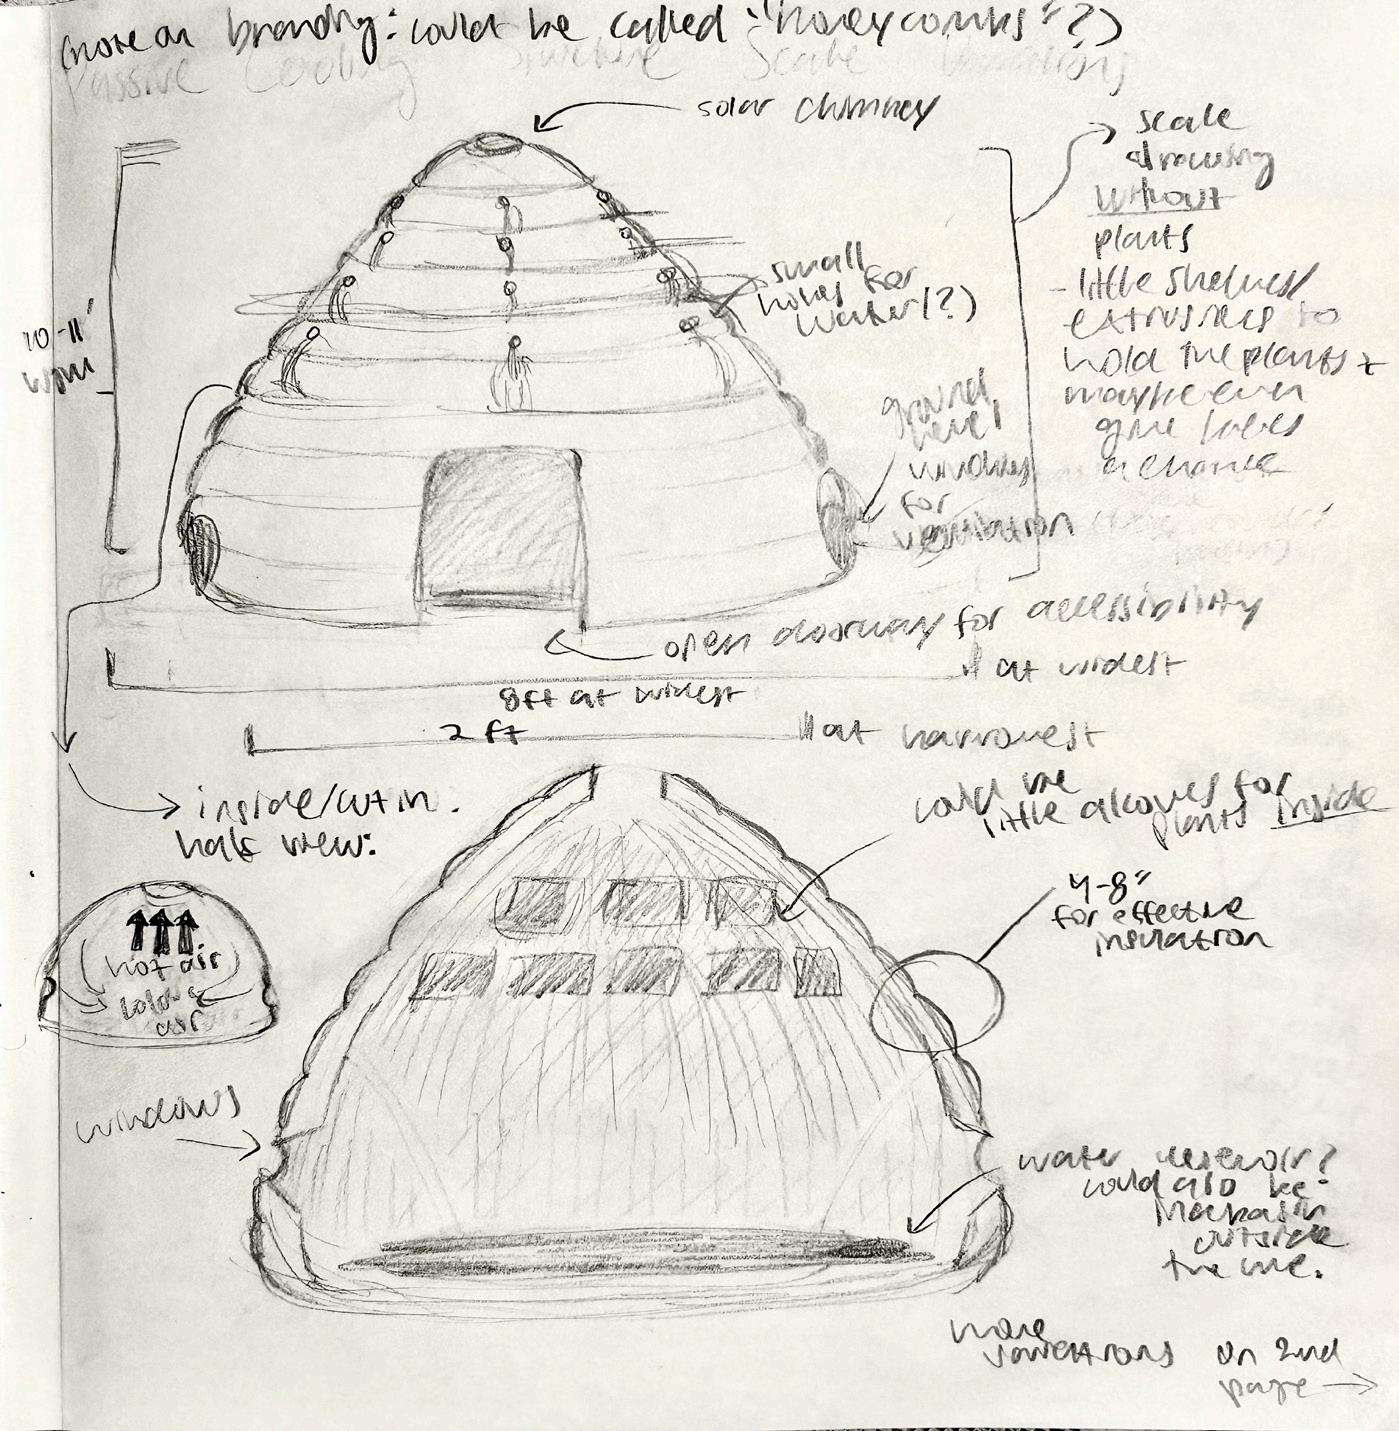 (more on branding: could be called "honeycombs"?)
Passive Cooling Structure Scale Variations
solar chimney
scale
drawing
without
plants
- little shelves/
extrusions to
hold the plants +
maybe even
give bees
a chance
10-11'
small
holes for
water(?)
ground
level
windows
for
ventilation
open doorway for accessibility
at widest
8ft at widest
2 ft
at narrowest
inside/cut in
half view:
could be
little alcoves for
plants inside
4-8"
for effective
insulation
hot air
air
windows
water reservoir?
could also be
outside
the
more
variations on 2nd
page →